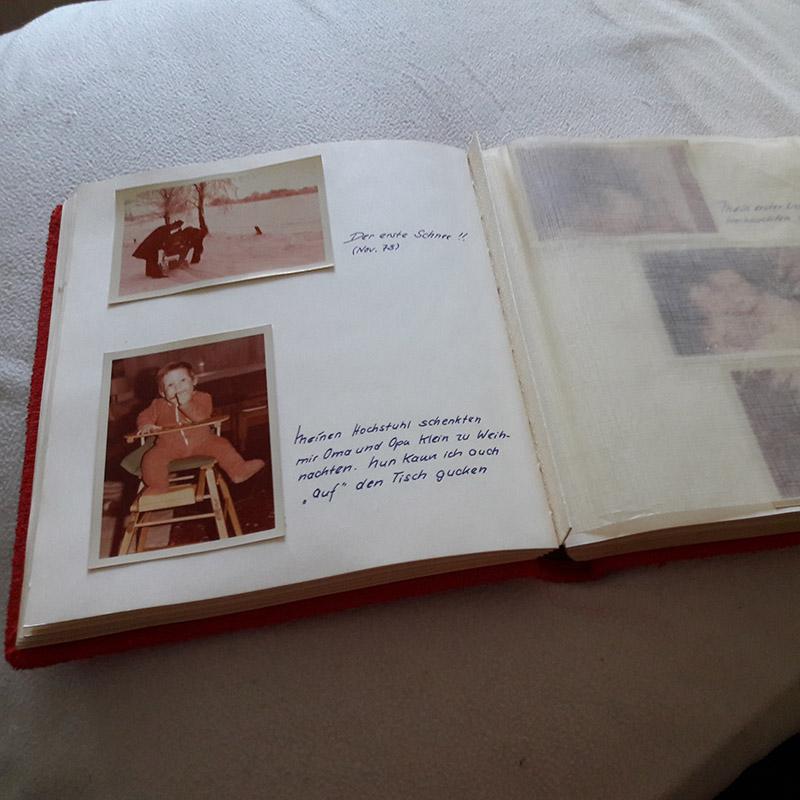 Der erste Schnee !!
(Nov. 73)
meinen Hochstuhl schenkten
mir Oma und Opa Klein zu Weih-
nachten. nun kann ich auch
„auf" den Tisch gucken
mein erstes
Weihnachten